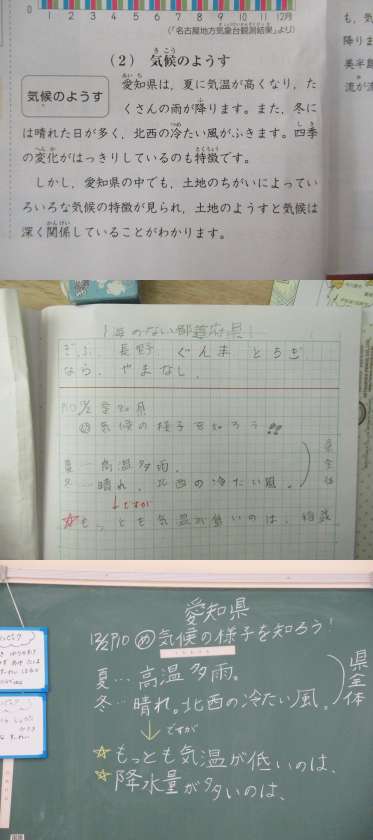 0 1 2 3 4 5 6 7 8 9 10 11 12月
(「名古屋地方気象台観測結果」より)
(2) 気候のようす
気候のようす
愛知県は,夏に気温が高くなり,た
くさんの雨が降ります。また,冬に
は晴れた日が多く,北西の冷たい風がふきます。四季
の変化がはっきりしているのも特徴です。
しかし,愛知県の中でも,土地のちがいによってい
ろいろな気候の特徴が見られ,土地のようすと気候は
深く関係していることがわかります。
も,気
降りま
美半島
流が流
海のない都道府県
ぎふ 長野 ぐんま とちぎ
なら、やまなし、
P10 12/2 愛知県
め 気候の様子を知ろう!!
夏…高温多雨。
冬…晴れ、北西の冷たい風。
県全体
↓ですが
☆もっとも気温が低いのは、
愛知県
12/2 P10 め 気候の様子を知ろう!
夏…高温多雨。
冬…晴れ。北西の冷たい風。
県全体
↓ですが
☆もっとも気温が低いのは、
☆降水量が多いのは、